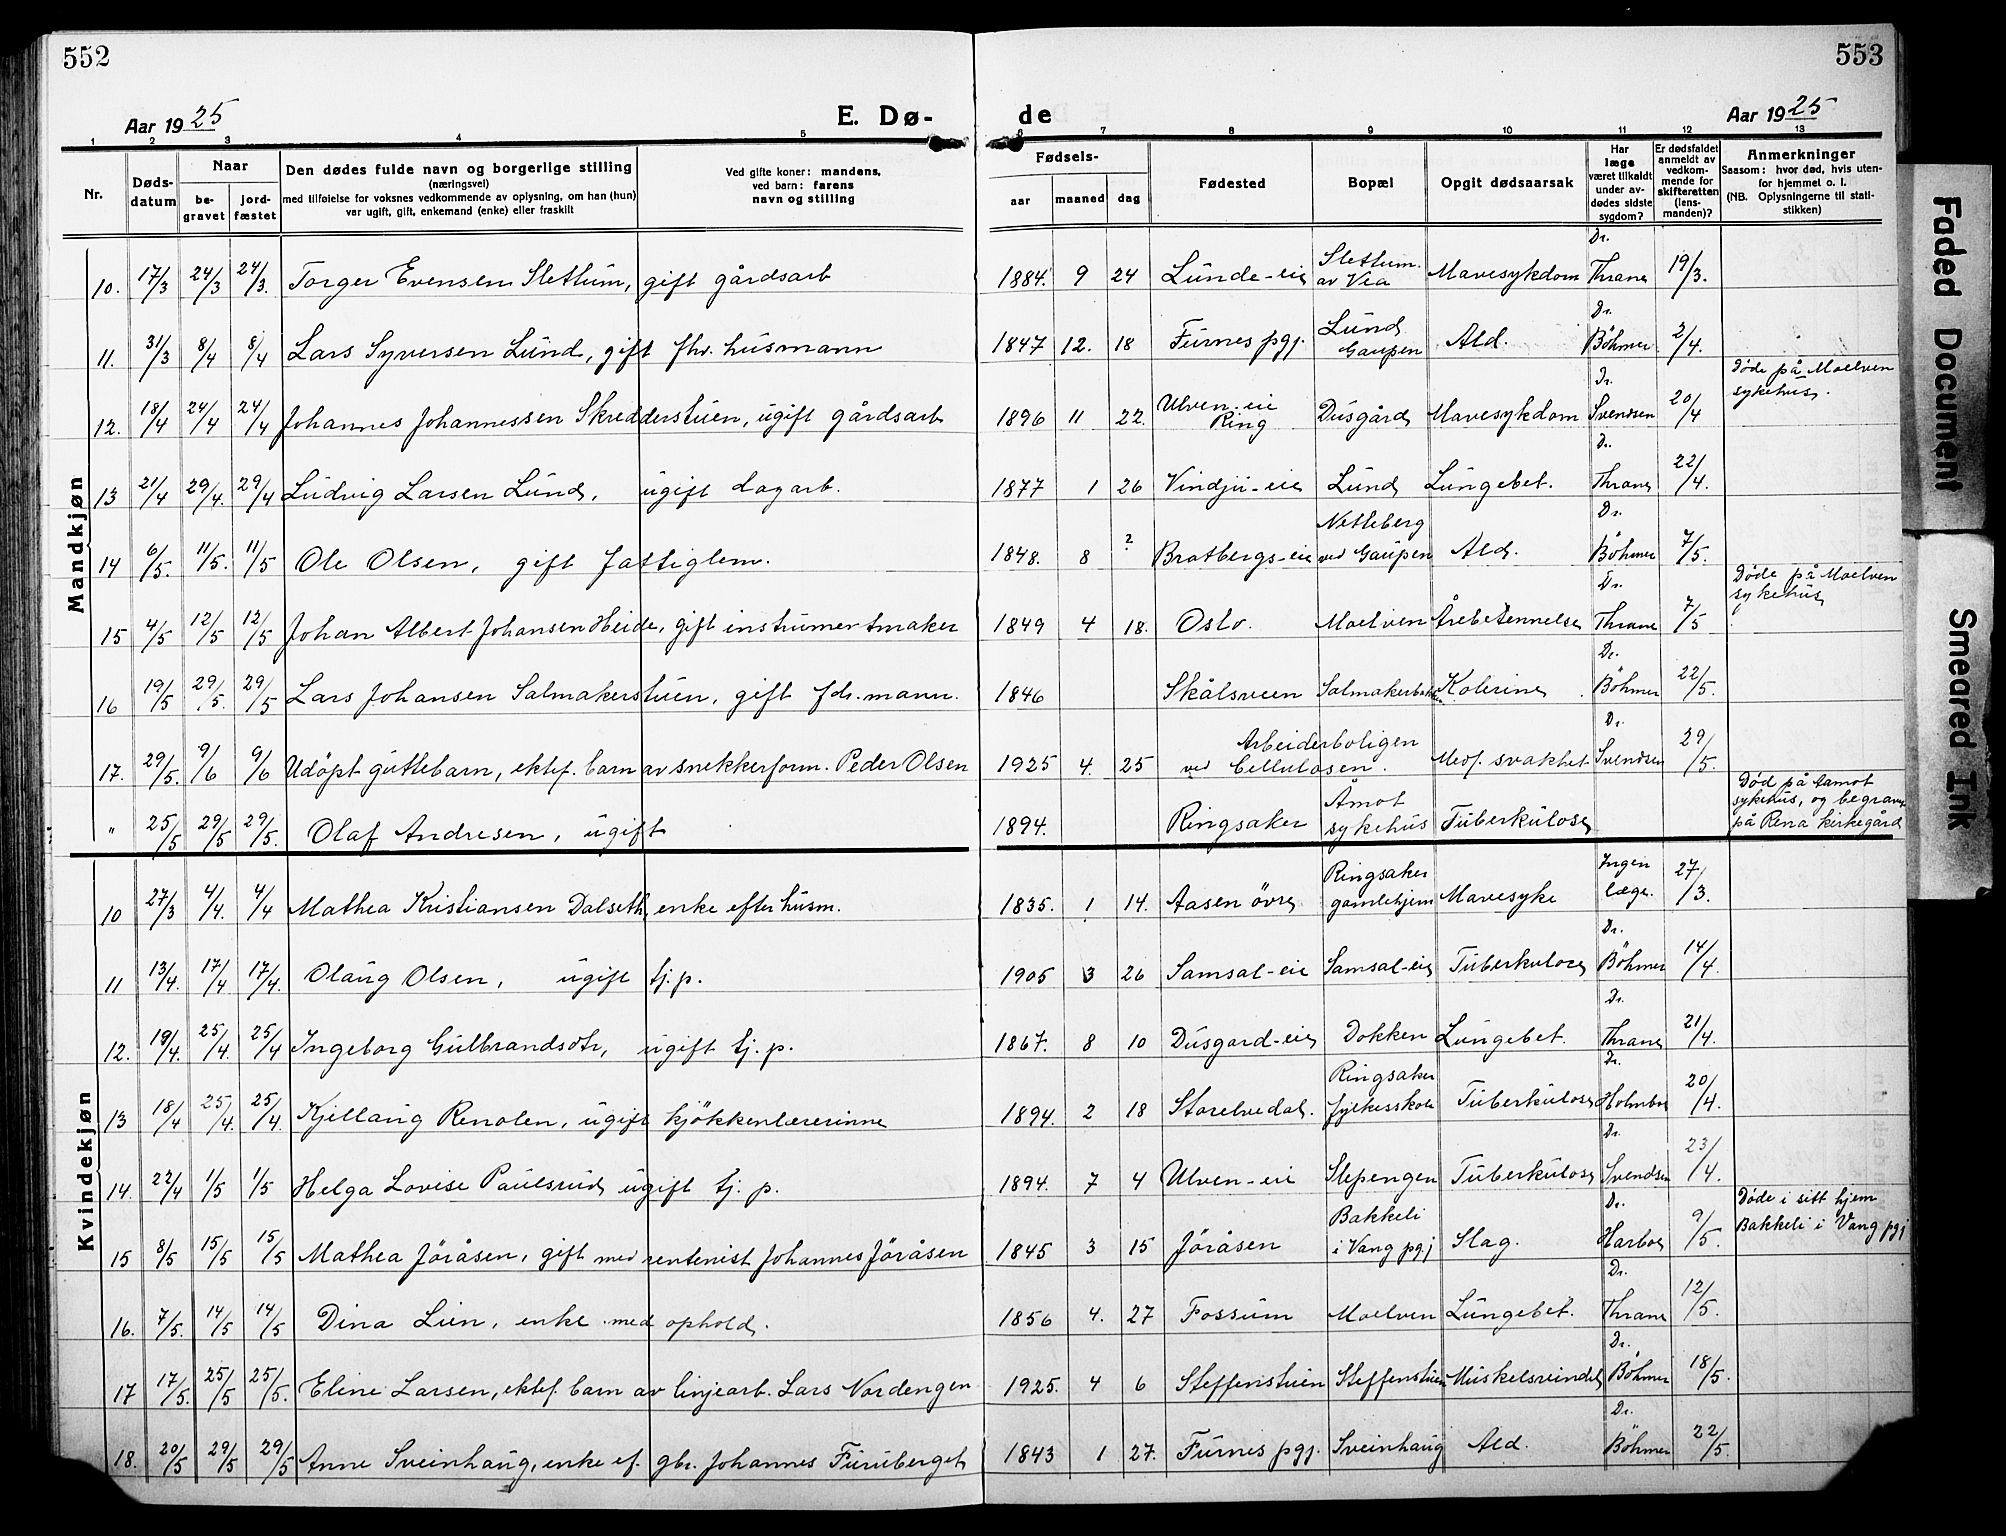 552
553
Aar 1925
E. Døde
Aar 1925
1 2 3 4 5 6 7 8 9 10 11 12 13
Nr.
Døds-
datum
Naar
be-
gravet
jord-
fæstet
Den dødes fulde navn og borgerlige stilling
(næringsvei)
med tilføielse for voksnes vedkommende av oplysning, om han (hun)
var ugift, gift, enkemand (enke) eller fraskilt
Ved gifte koner: mandens,
ved barn: farens
navn og stilling
Fødsels-
aar maaned dag
Fødested
Bopæl
Opgit dødsaarsak
Har
læge
været tilkaldt
under av-
dødes sidste
sygdom?
Er dødsfaldet
anmeldt av
vedkom-
mende for
skifteretten
(lens-
manden)?
Anmerkninger
Saasom: hvor død, hvis uten-
for hjemmet o. l.
(NB. Oplysningerne til stati-
stikken)
Mandkjøn
10. 17/3 24/3 24/3. Torger Evensen Slettum, gift gårdsarb 1884. 9 24 Lunde-eie Slettum. av Vea Mavesykdom Dr. Thrane 19/3.
11. 31/3 8/4 8/4 Lars Syversen Lund, gift fhv. husmann 1847 12. 18 Furnes pgj. Lund Gaupen Ald. Dr. Böhmer 2/4.
12. 18/4 24/4 24/4 Johannes Johannessen Skredderstuen, ugift gårdsarb 1896 11 22. Ulven-eie Ring Dusgård Mavesykdom Dr. Svendsen 20/4 Døde på Moelven sykehus.
13 21/4 29/4. 29/4 Ludvig Larsen Lund, ugift dagarb. 1877 1 26 Vindju-eie Lund Lungebet. Dr. Thrane 22/4.
14 6/5. 11/5. 11/5 Ole Olsen, gift fattiglem. 1848. 8 ? Bratbergs-eie Netteberg ved Gaupen Ald. Dr. Böhmer 7/5.
15 4/5 12/5 12/5 Johan Albert Johansen Heide, gift instrumentmaker 1849 4 18. Oslo. Moelven Årebetennelse Dr. Thrane 7/5 Døde på Moelven sykehus
16 19/5 29/5. 29/5 Lars Johansen Salmakerstuen, gift fdr. mann. 1846 Skålsveen Salmakerbakken Kolerine Dr. Böhmer 22/5.
17. 29/5. 9/6 9/6 Udöpt guttebarn, ektef. barn av snekkerform. Peder Olsen 1925 4. 25 Arbeiderboligen ved Cellulosen. Medf. svakhet Dr. Svendsen 29/5.
" 25/5 29/5 29/5. Olaf Andresen, ugift 1894. Ringsaker Åmot sykehus Tuberkulose Død på Aamot sykehus, og begravet på Rena kirkegård
Kvindekjøn
10 27/3 4/4. 4/4 Mathea Kristiansen Dalseth, enke efter husm. 1835. 1 14. Aasen övre Ringsaker gamlehjem Mavesyke Ingen læge. 27/3.
11 13/4. 17/4 17/4. Olaug Olsen, ugift tj.p. 1905 3 26 Samsal-eie Samsal-eie Tuberkulose Dr. Böhmer 14/4.
12. 19/4. 25/4. 25/4 Ingeborg Gulbrandsdtr, ugift tj.p. 1867. 8 10 Dusgard-eie Dokken Lungebet. Dr. Thrane 21/4
13 18/4 25/4. 25/4. Kjellaug Renolen, ugift kjökkenlærerinne 1894. 2 18 Storelvedal. Ringsaker fylkesskole Tuberkulose Dr. Holmboe 20/4.
14. 22/4 1/5 1/5 Helga Lovise Paulsrud ugift tj.p. 1894. 7 4 Ulven-eie Slepengen Tuberkulose Dr. Svendsen 23/4.
15 8/5 15/5 15/5 Mathea Jöråsen, gift med rentenist Johannes Jöråsen 1845 3 15 Jöråsen Bakkeli i Vang pgj Slag. Dr. Harboe 9/5. Døde i sitt hjem Bakkeli i Vang pgj
16. 7/5. 14/5 14/5 Dina Lien, enke med ophold. 1856 4. 27 Fossum Moelven Lungebet. Dr. Thrane 12/5.
17 17/5. 25/5 25/5. Eline Larsen, ektef. barn av linjearb. Lars Nordengen 1925. 4 6 Steffenstuen Steffenstuen Muskelsvindel Dr. Böhmer 18/5.
18. 20/5 29/5 29/5 Anne Sveinhaug, enke ef. gbr. Johannes Furuberget 1843 1 27. Furnes pgj. Sveinhaug Ald. Dr. Böhmer 22/5.
Faded Document
Smeared Ink